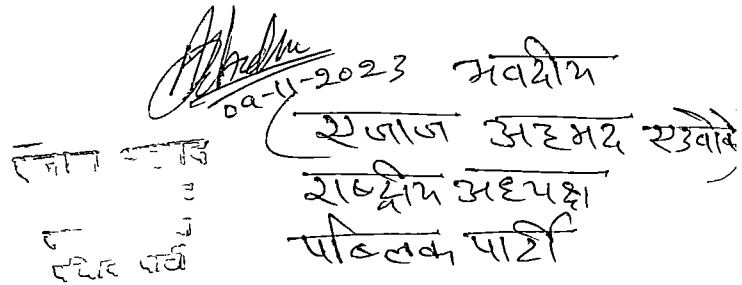 09-11-2023 भवदीय
(एजाज अहमद एडवोके)
राष्ट्रीय अध्यक्ष
पब्लिक पार्टी
पार्टी